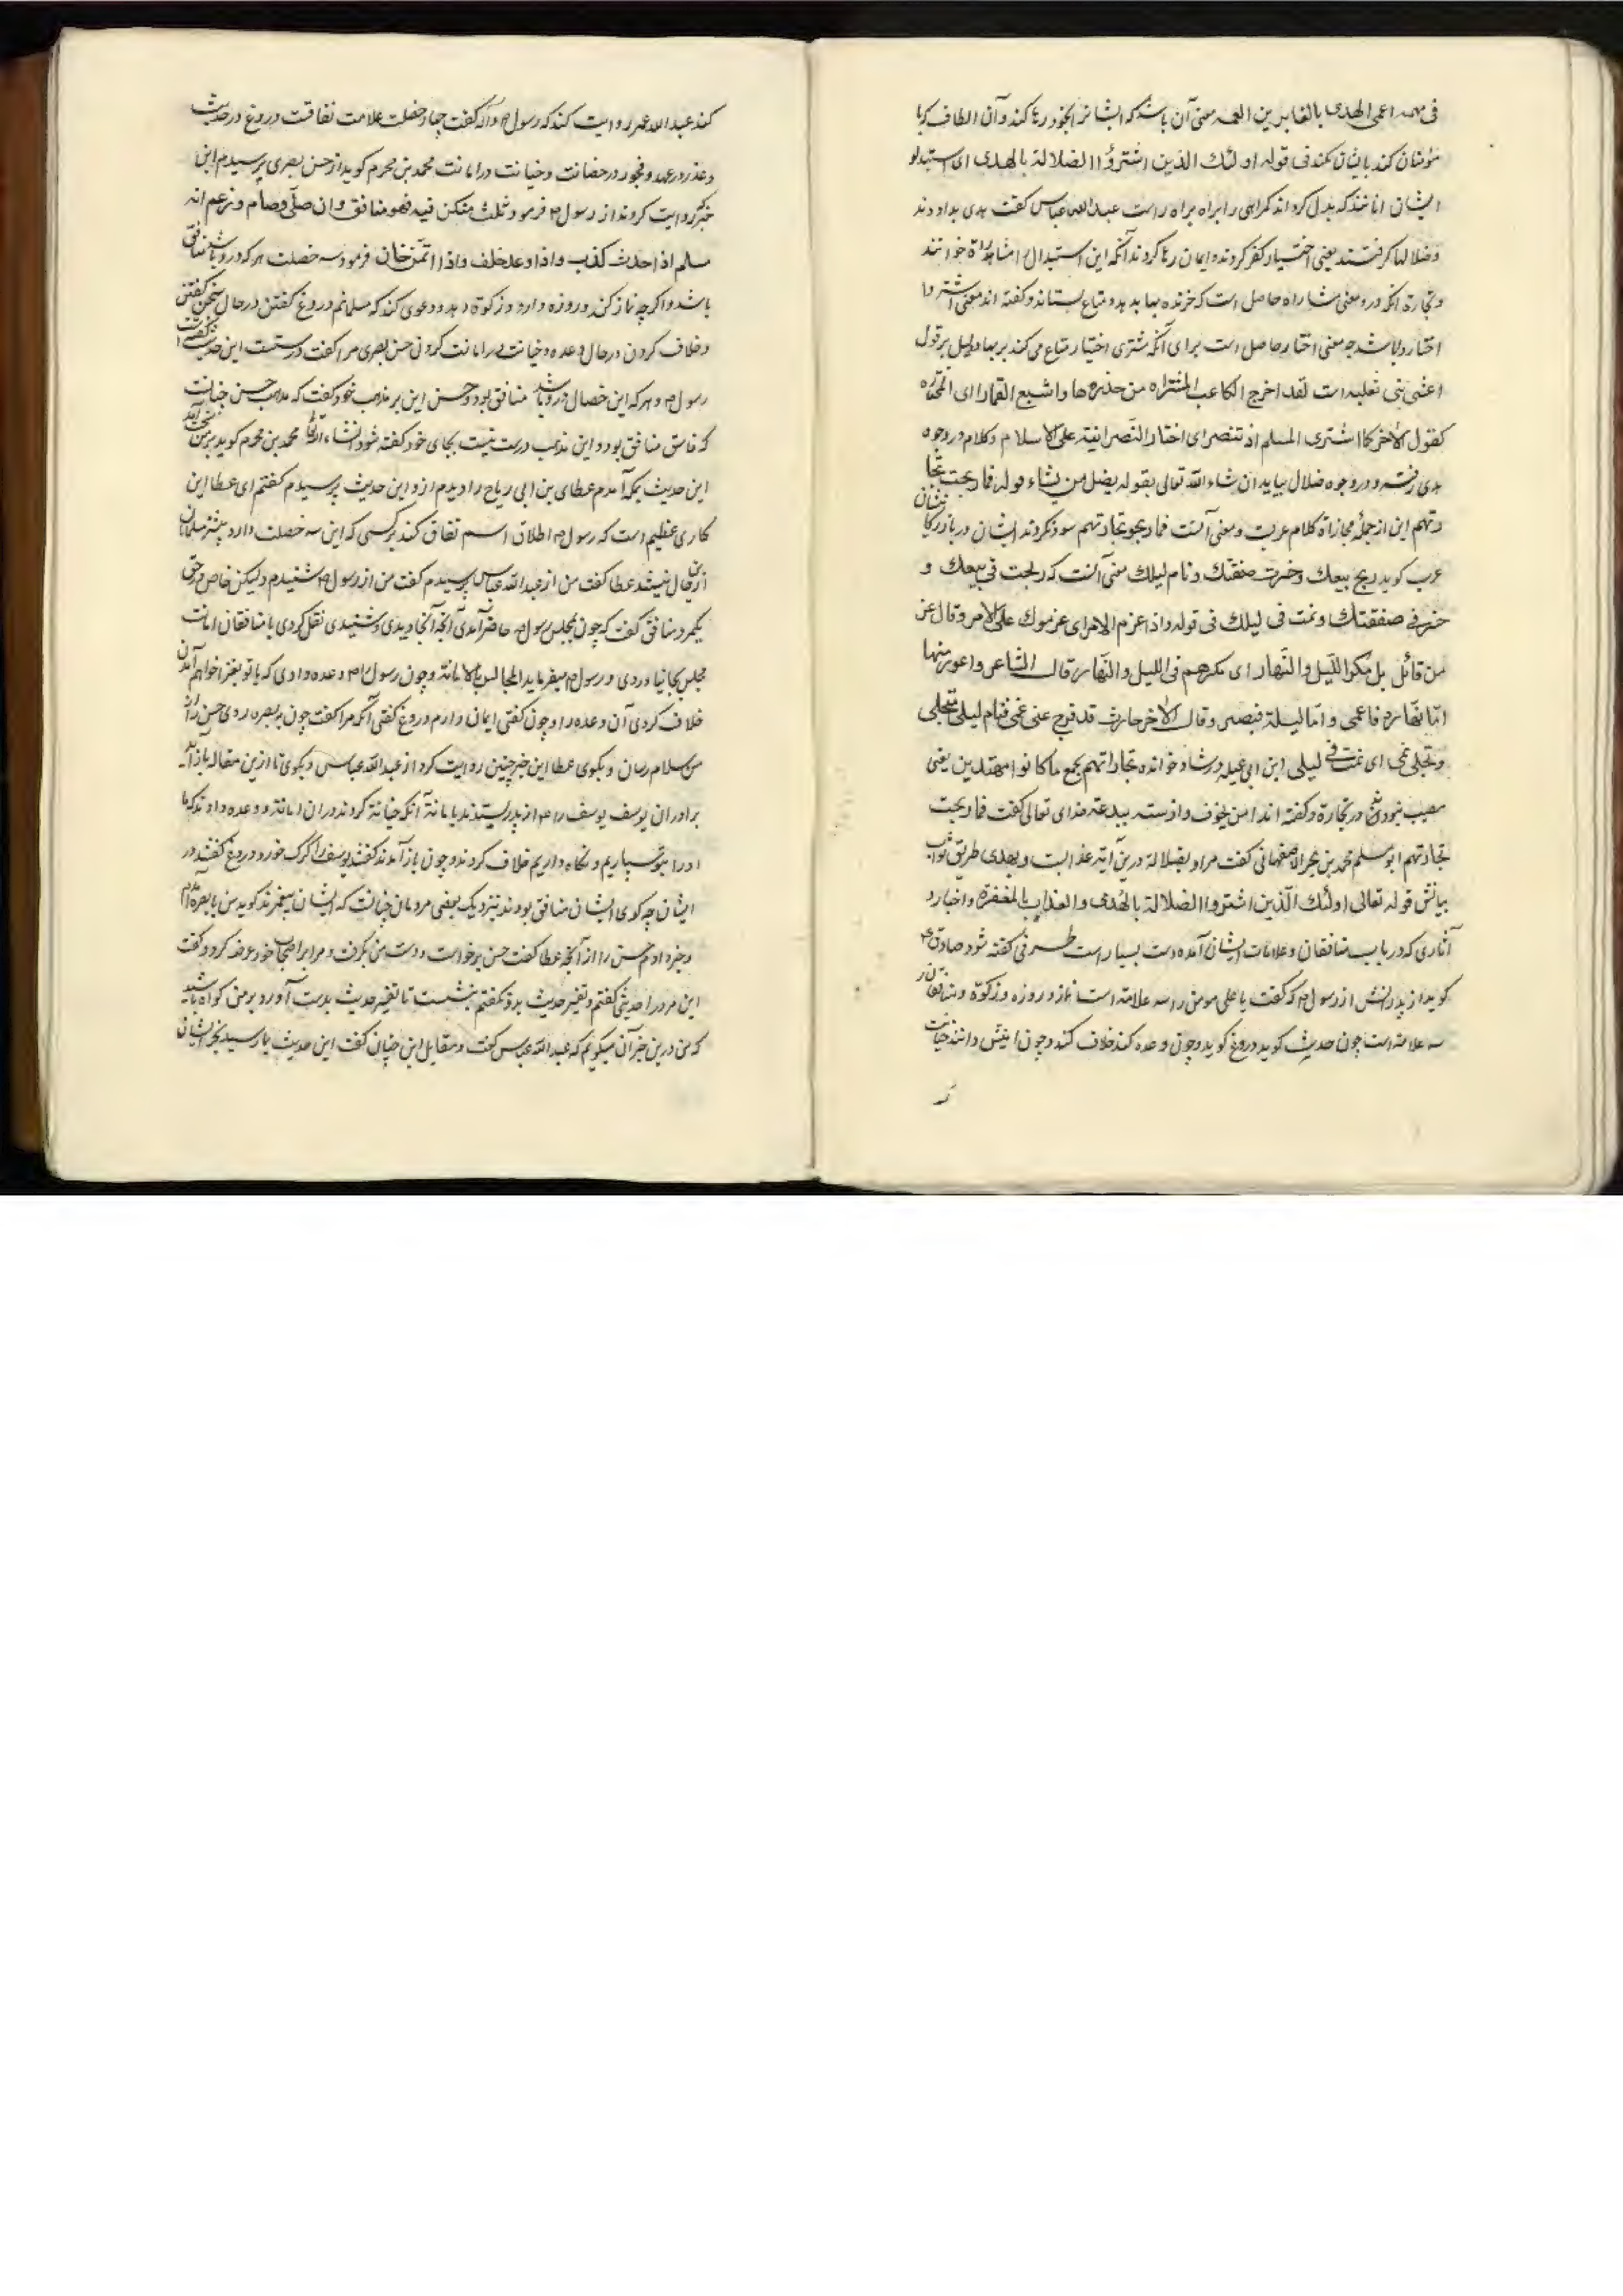 فی مهمه اعمی الهدی بالغابرین العمه معنی آن باشد که ایشانرا بخود رها کند و آن الطاف که با
مؤمنان کند بایشان نکند فی قوله اولئك الذین اشترؤا الضلالة بالهدی ای استبدلو
ایشان انانند که بدل کرداند کمراهی را براه راست عبدالله عباس کفت هدی بدادند
وضلالها کرفتند یعنی اختیار کفر کردند و ایمان رها کردند آنکه این استبدال را مشارٰة خواندند
و تجارة آنکه درو معنی مشاراه حاصل است که خرنده بها بدهد و متاع بستاند و کفته اند معنی اشتروا
اختاروا باشد چه معنی اختار حاصل است برای آنکه مشتری اختیار متاع می کند بر بها دلیل بر قول
اعشی بنی ثعلبه است لقد اخرج الکاعب المشتراه من خدرها واشیع القمارا ای المختاره
کقول الآخر کما اشتری المسلم اذ تنصر ای اختار النصرانیة علی الاسلام وکلام در وجوه
هدی رفته و در وجوه ضلال بیاید ان شاء الله تعالی بقوله یضل من یشاء قوله فما ربحت تجا
رتهم این از جملهٔ مجازاة کلام عربست و معنی آنست فما ربحو تجارتهم سود نکردند ایشان در بازرکانیشان
عرب کوید ربح بیعك وخسرت صفقتك ونام لیلك معنی آنست که ربحت فی بیعك و
خسر فی صفقتك ونمت فی لیلك فی قوله واذا عزم الامر ای عزموك علی الامر وقال عز
من قائل بل مکر اللیل والنهار ای مکرهم فی اللیل والنهار قال الشاعر واعور منها
اما نهاره فاعمی واما لیله فبصیر وقال الآخر حارث قد فرج عنی غمی فنام لیلی وتجلی
وتجلی غمی ای نمت فی لیلی ابن ابی عبله در شاذ خوانده تجاراتهم بجمع ما کانوا مهتدین یعنی
مصیب نبودند در تجارة و کفته اند امن بخوف و از سنه ببدعة خدای تعالی کفت فما ربحت
تجارتهم ابومسلم محمد بن بحر الاصفهانی کفت مراد بضلالة درین آیة عذابست وبهدی طریق ثواب
بیانش قوله تعالی اولئك الذین اشتروا الضلالة بالهدی والعذاب بالمغفرة و اخبار و
آثاری که در باب منافقان و علامات ایشان آمده است بسیار است طرفی کفته شود صادق ع
کوید از پدرانش از رسول ص که کفت یا علی مومن را سه علامة است نماز و روزه و زکوة و منافق را
سه علامة است چون حدیث کوید دروغ کوید و چون وعده کند خلاف کند و چون امینش دانند خیانت
کند عبدالله عمر روایت کند که رسول ص وآله کفت چهار خصلت علامت نفاقست دروغ در حدیث
و غدر در عهد و فجور در خصانت و خیانت در امانت محمد بن محرم کوید از حسن بصری پرسیدم این
خبر که روایت کردند از رسول ص فرمود ثلث من کن فیه فهو منافق وان صلی وصام وزعم انه
مسلم اذا حدث کذب واذا وعد خلف واذا اتمن خان فرمود سه خصلت هر که درو باشد منافق
باشد و اکر چه نماز کند و روزه دارد و زکوة دهد و دعوی کند که مسلمانم دروغ کفتن در حال سخن کفتن
و خلاف کردن در حال وعده و خیانت در امانت کردن حسن بصری مرا کفت درستست این حدیث از حضرت
رسول ص و هر که این خصال درو باشد منافق بود و حسن این بر مذهب خود کفت که مذهب حسن چنانست
که فاسق منافق بود و این مذهب درست نیست بجای خود کفته شود انشاء الله محمد بن محرم کوید بر من سخت آمد
این حدیث بمکه آمدم عطای بن ابی ریاح را دیدم ازو این حدیث پرسیدم کفتم ای عطا این
کاری عظیم است که رسول ص اطلاق اسم نفاق کند بر کسی که این سه خصلت دارد بیشتر مسلمانان
ازین خالی نیستند عطا کفت من از عبدالله عباس پرسیدم کفت من از رسول ص شنیدم ولیکن خاص در حق
یکمرد منافق کفت که چون بمجلس رسول ص حاضر آمدی آنچه آنجا دیدی و شنیدی نقل کردی با منافقان امانت
مجلس بجا نیاوردی و رسول ص میفرماید المجالس بالامانة و چون رسول را ص وعده دادی که با تو بغزا خواهم آمدن
خلاف کردی آن وعده را و چون کفتی ایمان دارم دروغ کفتی آنکه مرا کفت چون ببصره روی حسن را از
من سلام رسان و بکوی عطا این خبر چنین روایت کرد از عبدالله عباس و بکوی تا ازین مقاله باز آید
برادران یوسف یوسف را ع از پدر بستدند بامانة آنکه خیانة کردند در آن امانة و وعده دادند که ما
او را بتو سپاریم و نکاه داریم خلاف کردند و چون باز آمدند کفتند یوسف را کرک خورد دروغ کفتند در
ایشان چه کوی ایشان منافق بودند بنزدیک بعضی مردمان چنانست که ایشان پیغمبرند کوید من ببصره آمدم
و خبر دادم حسن را از آنچه عطا کفت حسن برخواست و دست من بکرفت و مرا بر اصحاب خود عرضه کرد و کفت
این مرد را حدیثی کفتم و تفسیر حدیث بدو نکفتم ننشست تا تفسیر حدیث بدست آورد بر من کواه باشید
که من درین خبر آن میکویم که عبدالله عباس کفت و مقاتل ابن حیان کفت این حدیث بما رسید بخراسان